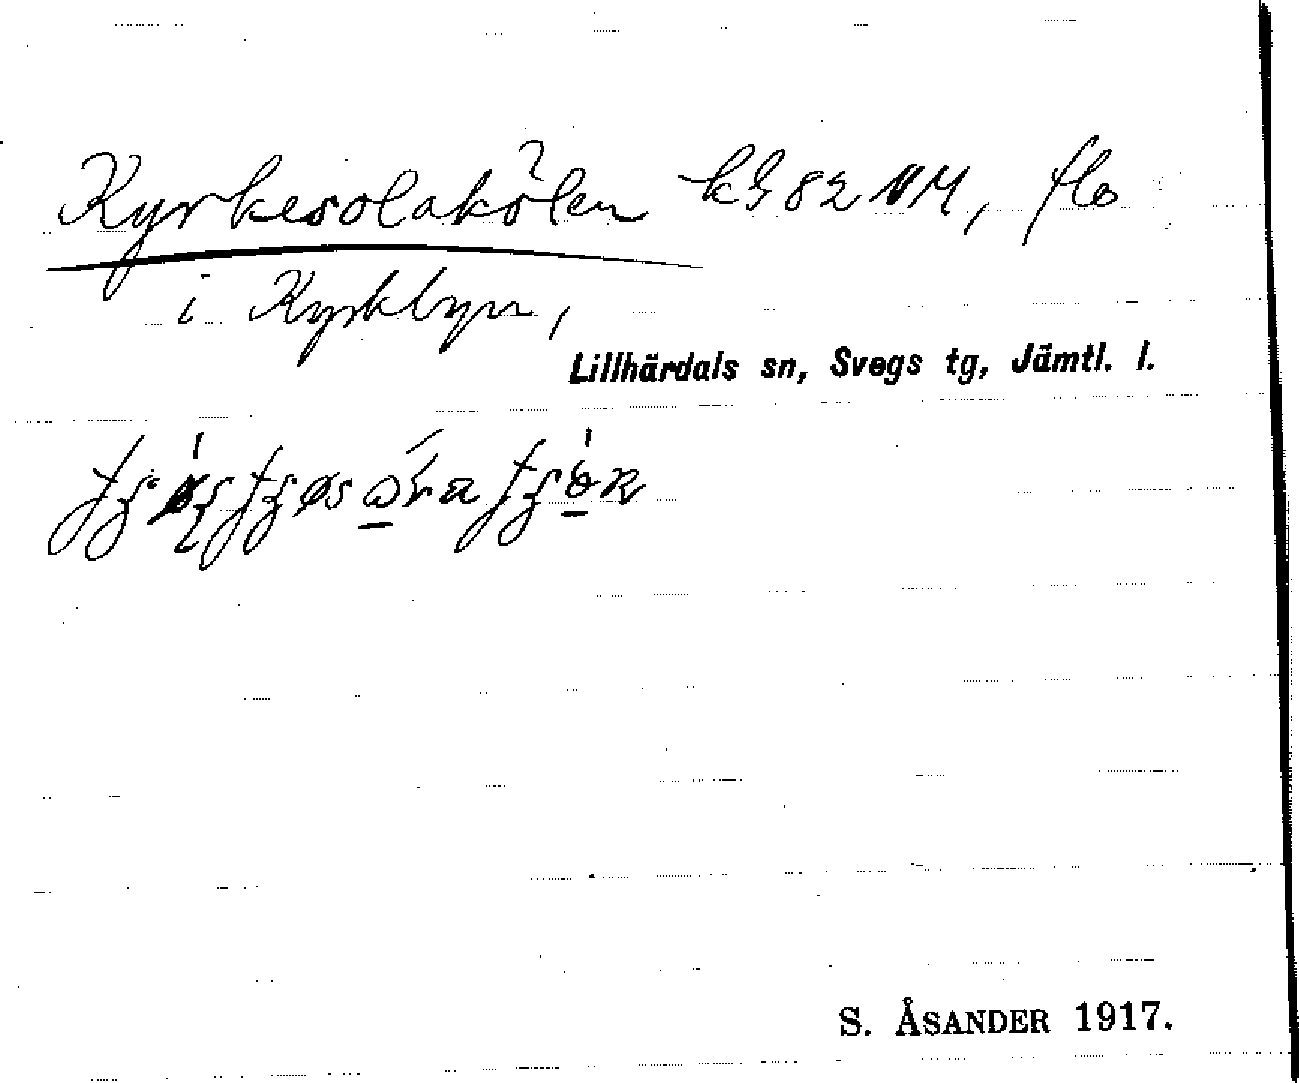 Kyrkesolakölen kg 82 NM, flo
i Kyrkbyn,
Lillhärdals sn, Svegs tg, Jämtl. l.
S. ÅSANDER 1917.